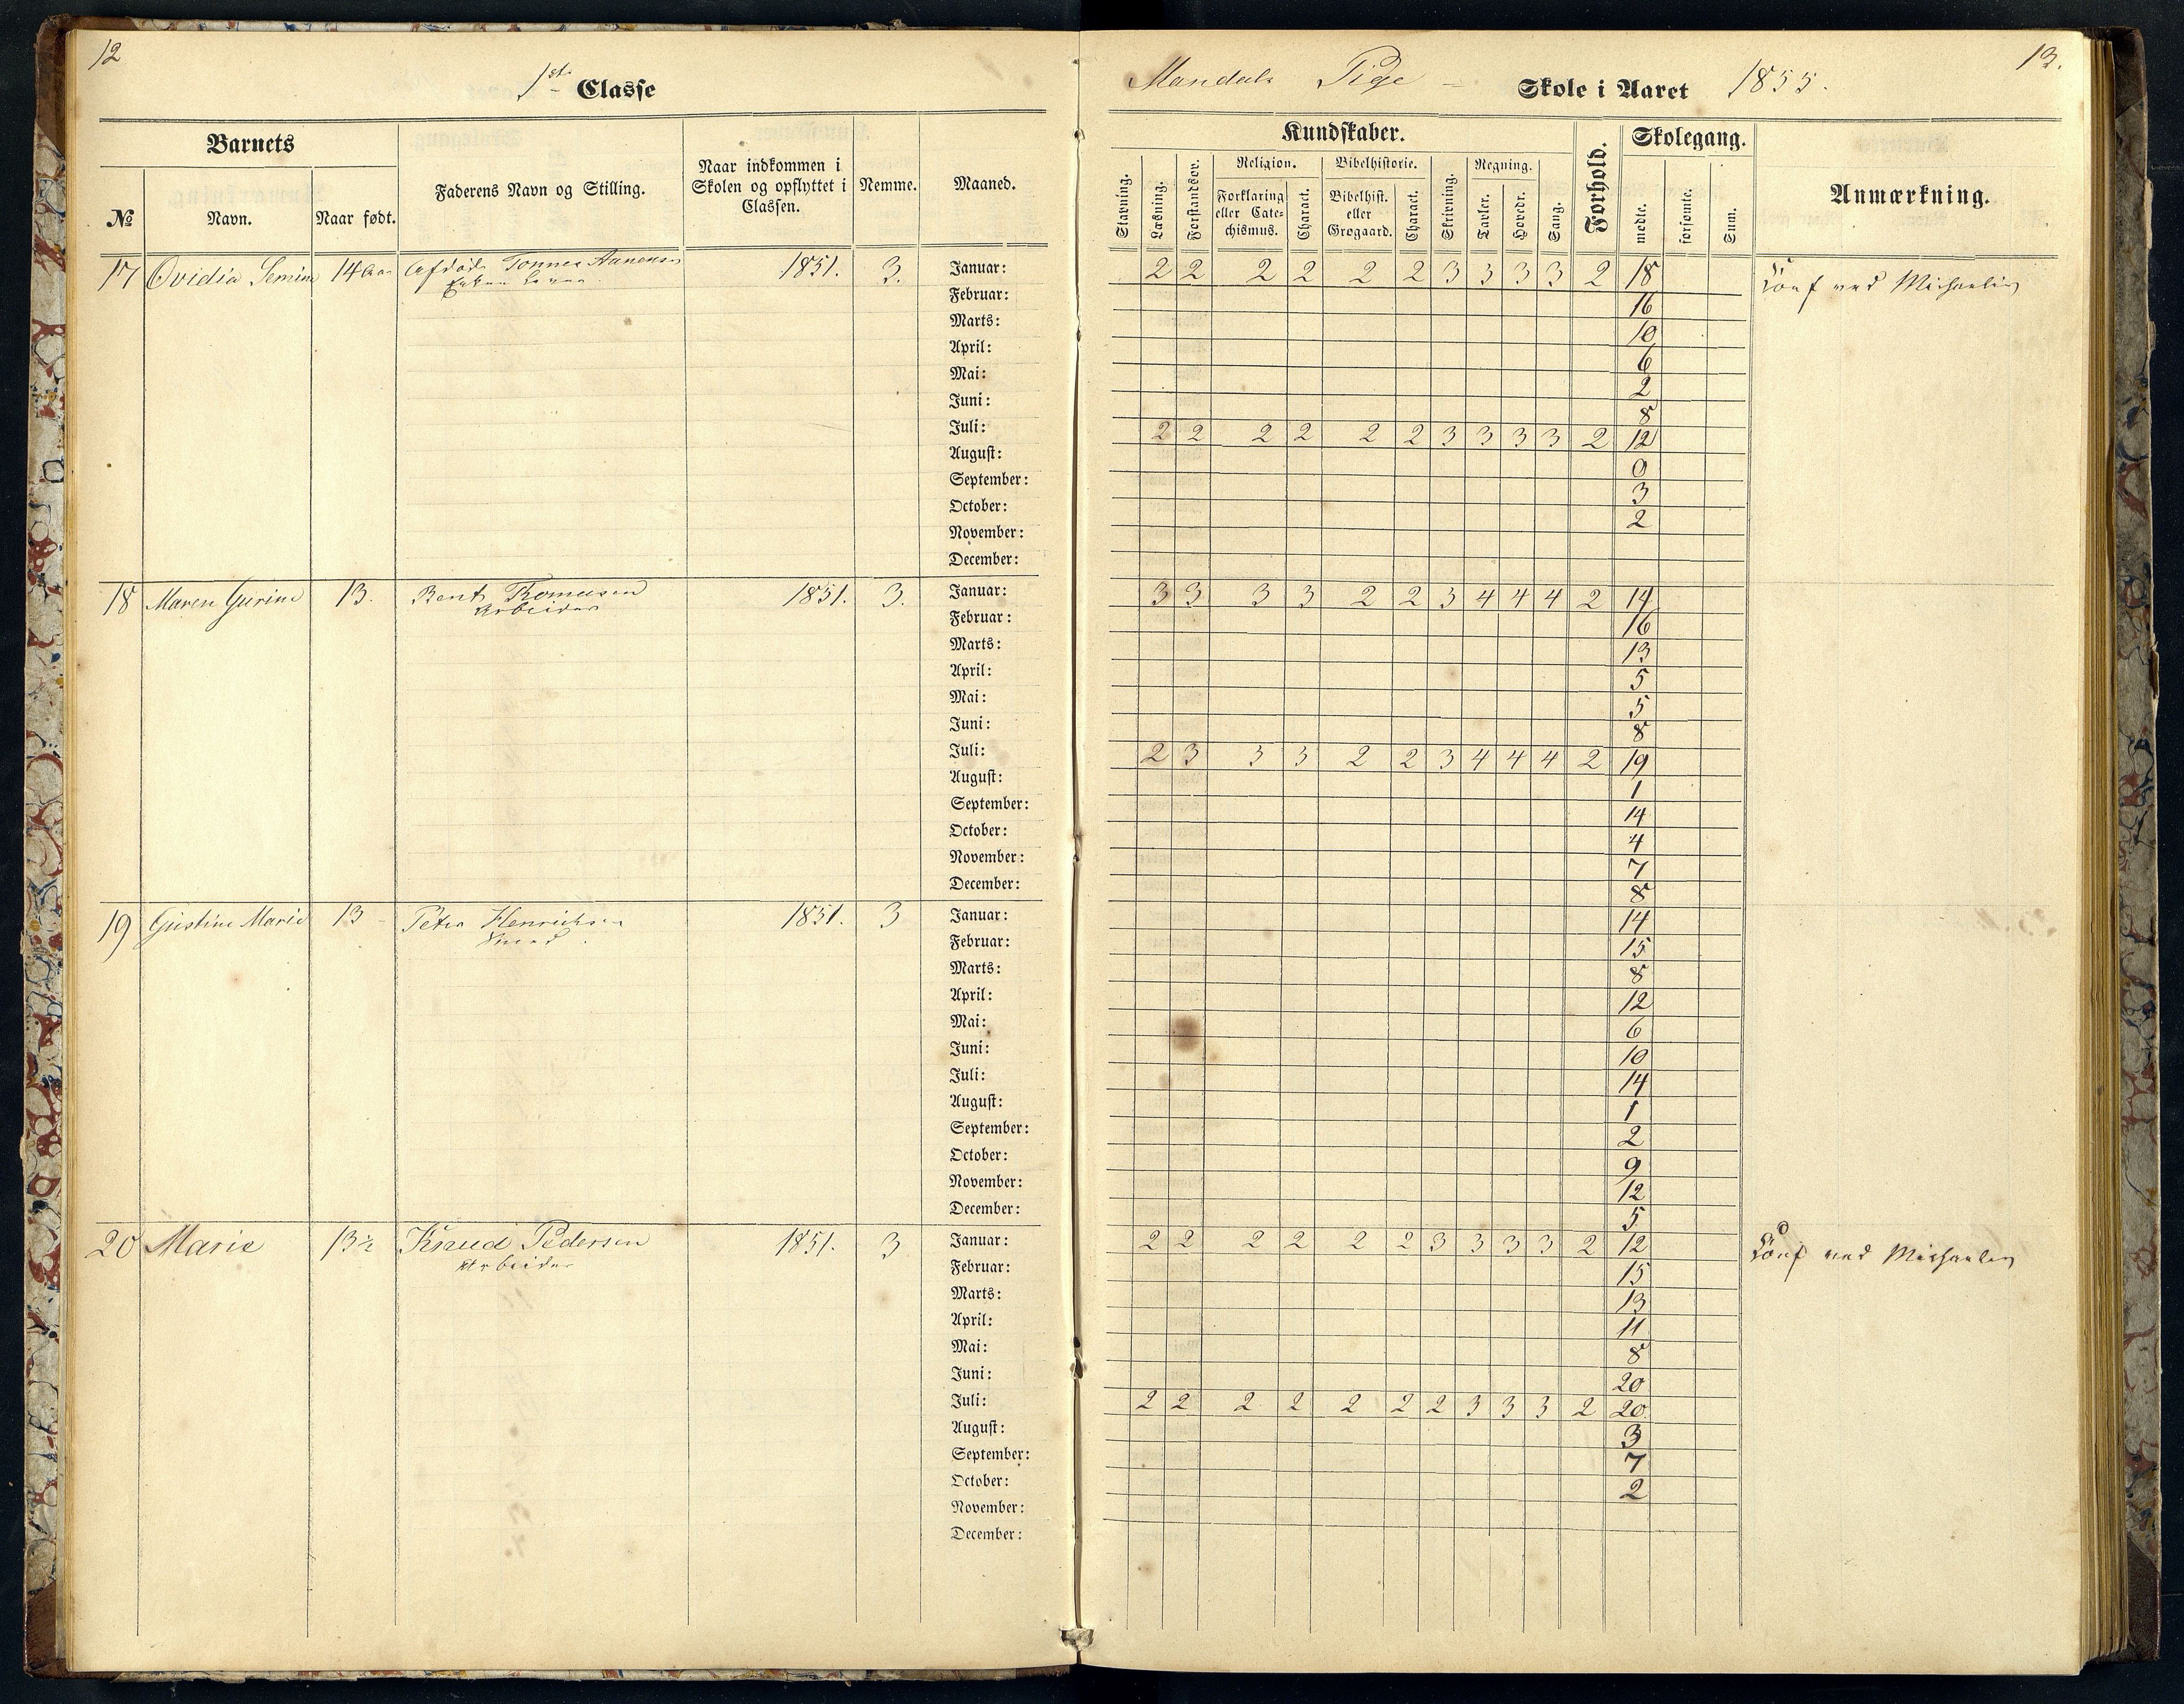 12
1ste Classe
Barnets
№
Navn.
Naar født.
Faderens Navn og Stilling.
Naar indkommen i
Skolen og opflyttet i
Classen.
Nemme.
Maaned.
17 Ovidia Semine 14 Aar afdøde Tonnes Aanensen 1851. 3.
Januar:
Februar:
Marts:
April:
Mai:
Juni:
Juli:
August:
September:
October:
November:
December:
18 Maren Gurine 13. Bent Thomesen 1851. 3.
Arbeider
Januar:
Februar:
Marts:
April:
Mai:
Juni:
Juli:
August:
September:
October:
November:
December:
19 Gustine Marie 13 - Peter Henrichsen 1851. 3
Smed.
Januar:
Februar:
Marts:
April:
Mai:
Juni:
Juli:
August:
September:
October:
November:
December:
20 Marie 13½ Knud Pedersen 1851. 3
Arbeider
Januar:
Februar:
Marts:
April:
Mai:
Juni:
Juli:
August:
September:
October:
November:
December:
13.
Mandals Pige - Skole i Aaret 1855.
Kundskaber.
Stavning.
Læsning.
Forstandsøv.
Religion.
Forklaring
eller Cate-
chismus.
Charact.
Bibelhistorie.
Bibelhist.
eller
Grogaard.
Charact.
Skrivning.
Regning.
Tavler.
Hovedr.
Sang.
Forhold.
Skolegang.
mødte.
forsømte.
Sum.
Anmærkning.
2 2 2 2 2 2 3 3 3 3 2 18 Conf ved Michaelis
16
10
6
2
8
2 2 2 2 2 2 3 3 3 3 2 12
0
3
2
3 3 3 3 2 2 3 4 4 4 2 14
16
13
5
5
8
2 3 3 3 2 2 3 4 4 4 2 19
1
14
4
7
8
14
15
8
12
6
10
14
1
2
9
12
5
2 2 2 2 2 2 3 3 3 3 2 12 Conf ved Michaelis
15
13
11
8
20
2 2 2 2 2 2 2 3 3 3 2 20
3
7
2